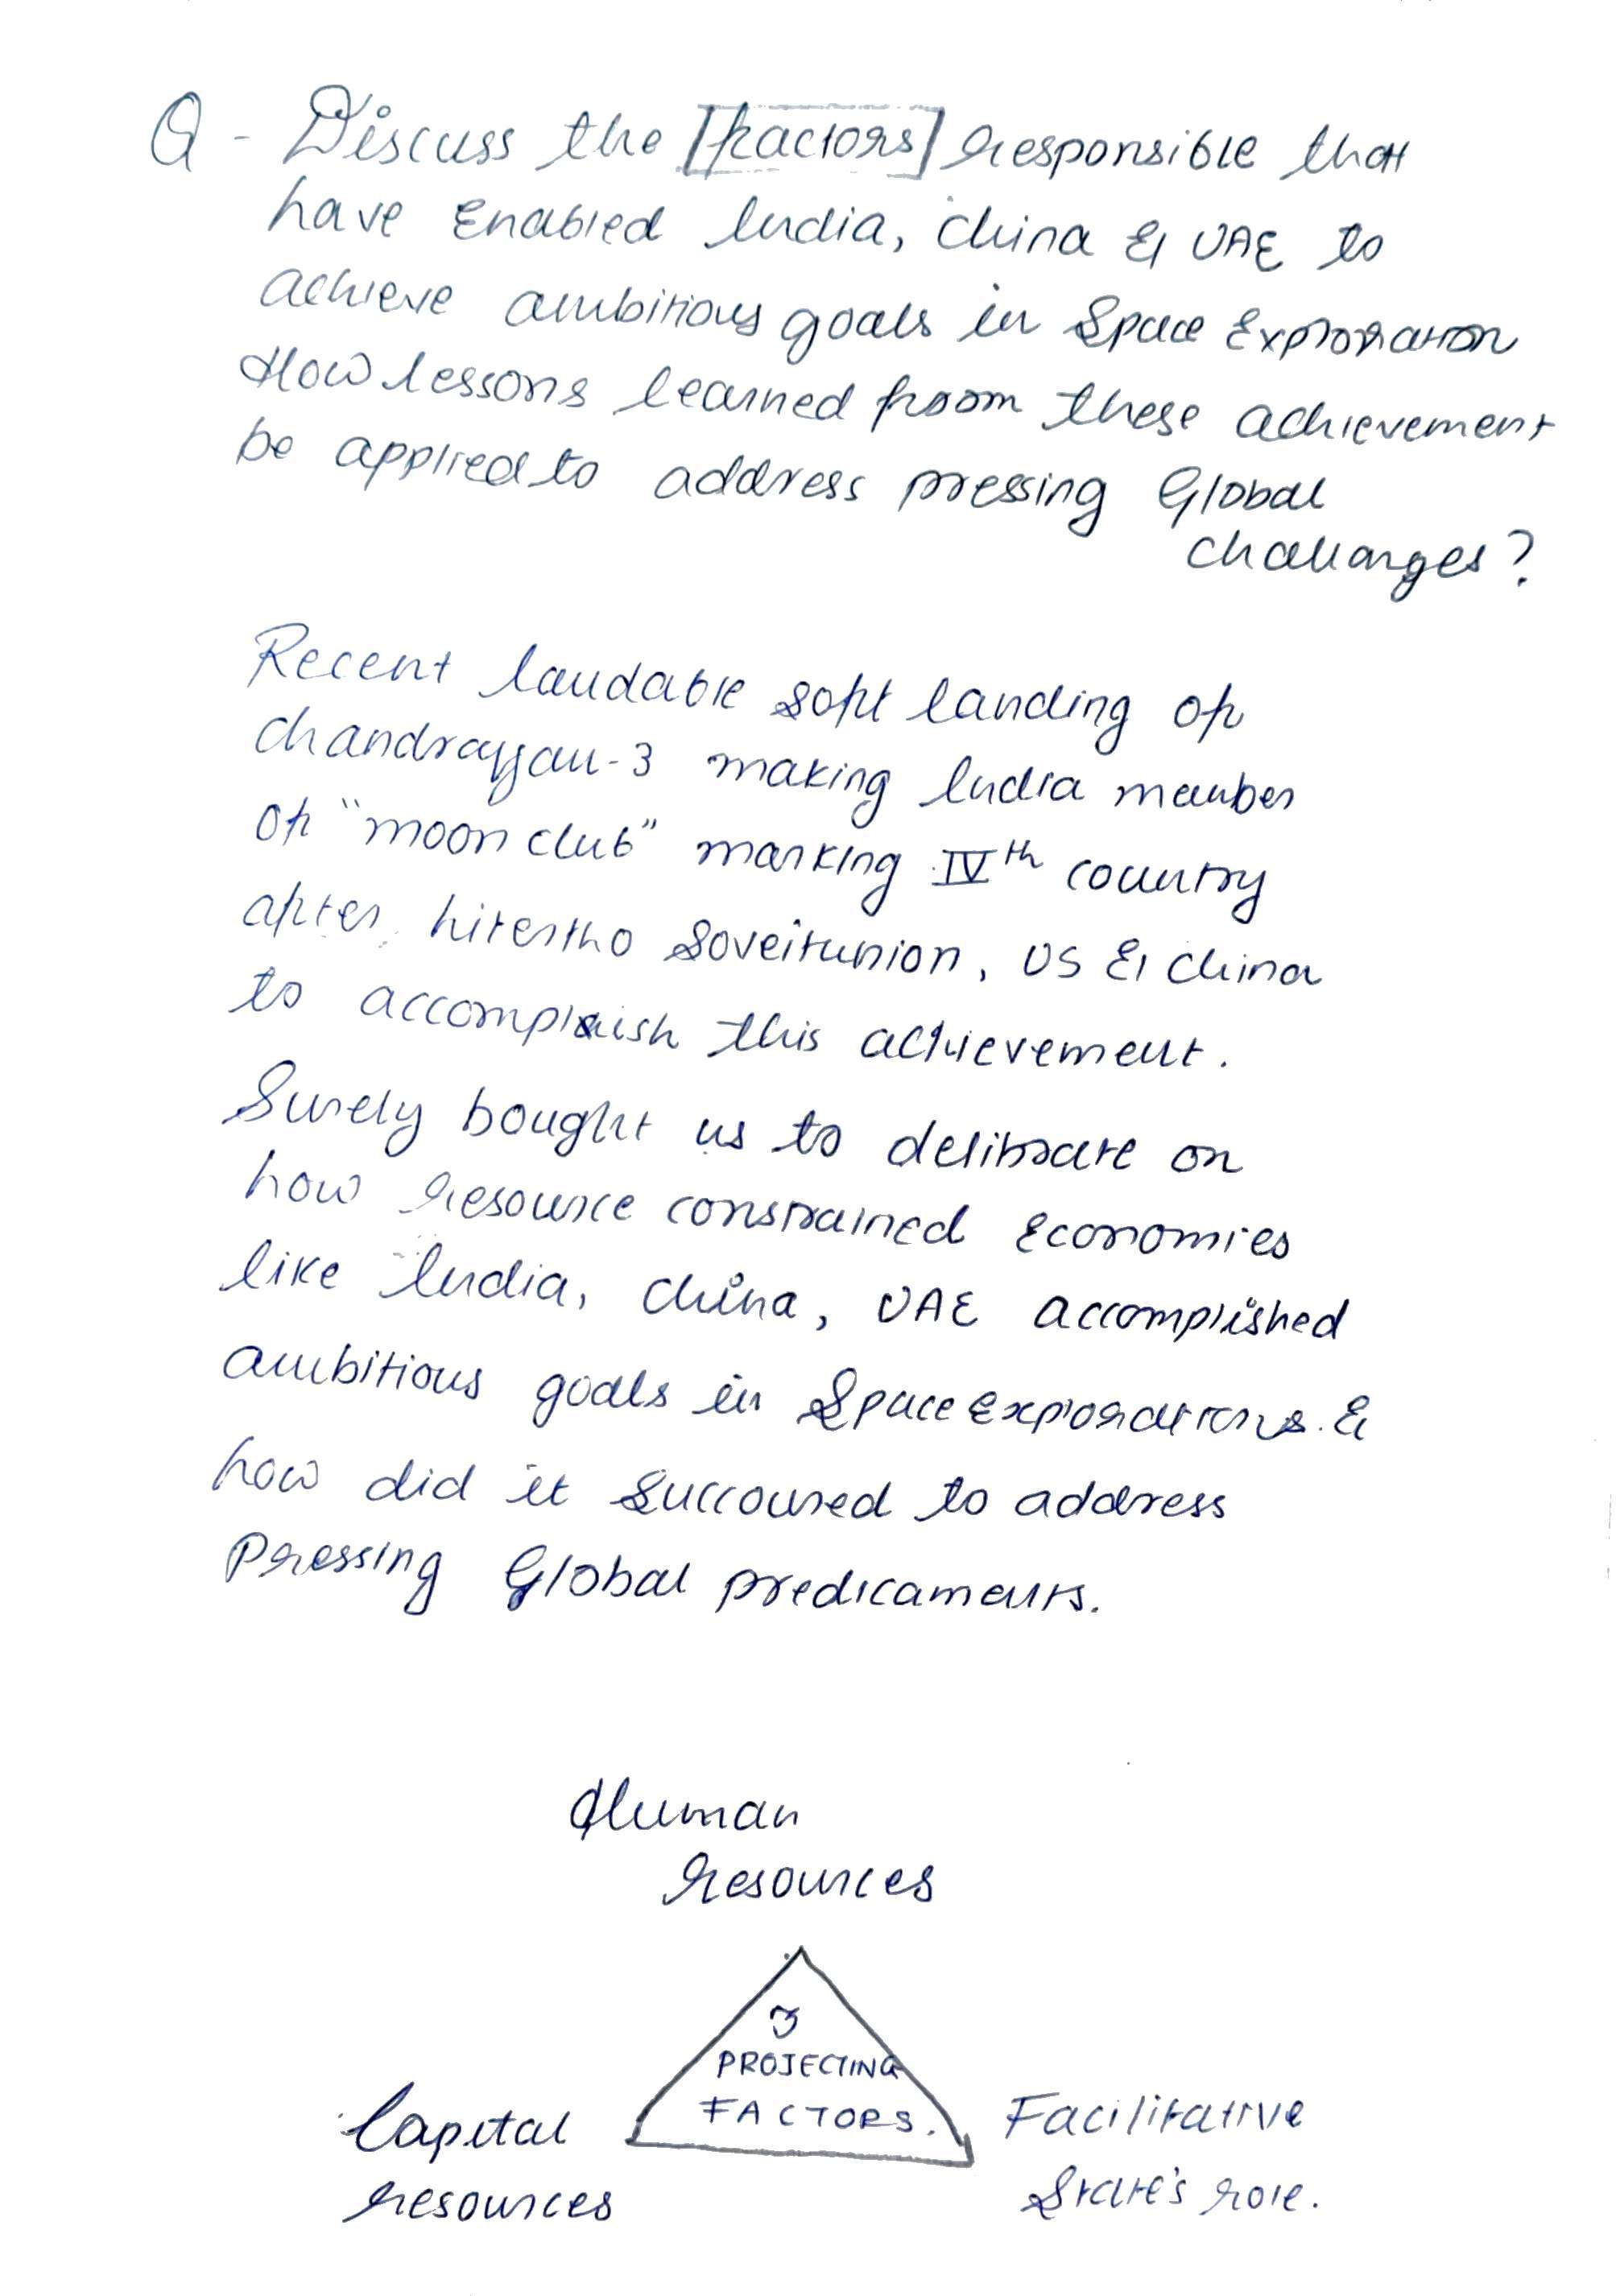 Q - Discuss the [factors] responsible that
have Enabled India, China & UAE to
achieve ambitious goals in Space Exploration
How lessons learned from these achievement
be applied to address pressing Global
challanges?
Recent laudable soft landing of
chandrayyan-3 making India member
of "moon club" marking IVth country
after hiterstho Soveitunion, US & China
to accomplish this achievement.
Surely bought us to delibrate on
how resource constrained economies
like India, China, UAE accomplished
ambitious goals in Space explorations. &
how did it succoured to address
Pressing Global predicaments.
Human
resources
3
PROJECTING
FACTORS.
Capital
resources
Facilitative
State's role.